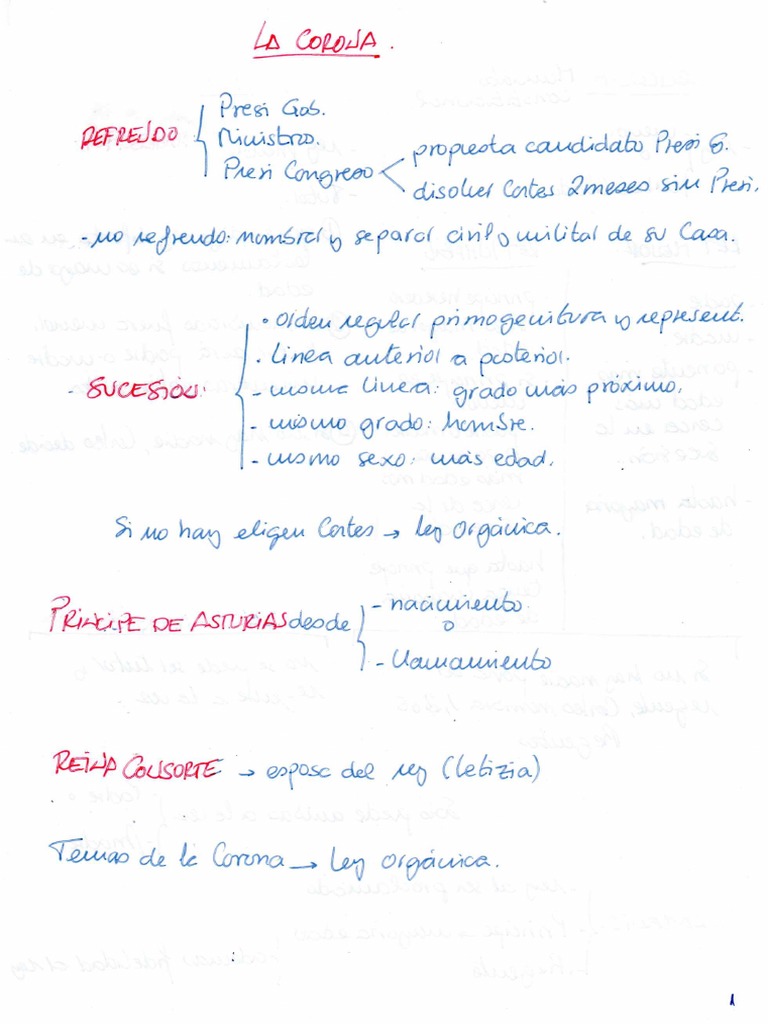 LA CORONA.
REFRENDO
Presi Gob.
Ministros.
Presi Congreso
propuesta candidato Presi G.
disolver Cortes 2 meses sin Presi.
- no refrendo: nombrar y separar civil y militar de su Casa.
- SUCESIÓN:
• orden regular primogenitura y represent.
- línea anterior a posterior.
- misma línea: grado más próximo.
- mismo grado: hombre.
- mismo sexo: más edad.
Si no hay eligen Cortes → ley orgánica.
PRINCIPE DE ASTURIAS desde
- nacimiento
o
- llamamiento
REINA CONSORTE → esposa del rey (Letizia)
Temas de la Corona → ley orgánica.
1